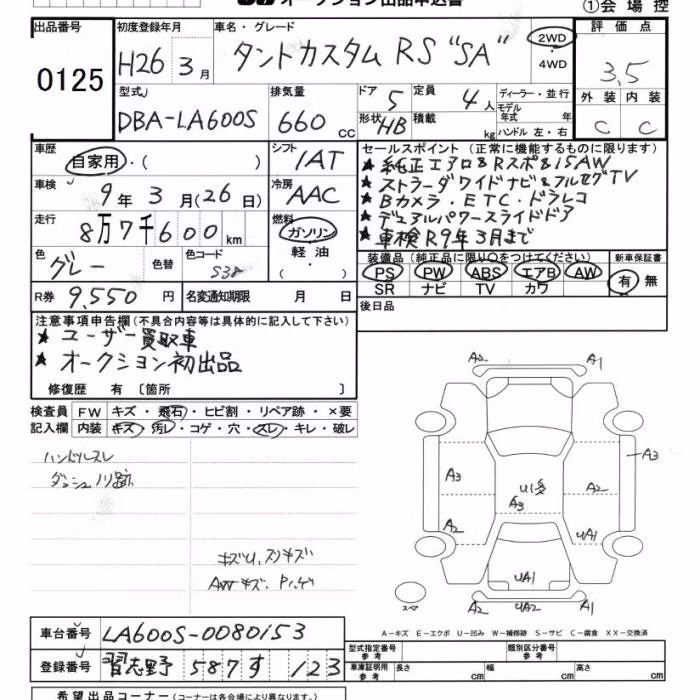 オークション出品申込書
①会場控
出品番号
0125
初度登録年月
H26 3月
車名・グレード
タントカスタム RS "SA"
2WD
・
4WD
評価点
3.5
外装 内装
C C
型式
DBA-LA600S
排気量
660 cc
ドア 5
形状 HB
定員 4人
積載 kg
ディーラー・並行
モデル年式 年
ハンドル 左・右
車歴
自家用・( )
シフト
IAT
車検
9年3月(26日)
冷房
AAC
走行
8万7千600km
燃料
ガソリン
軽油
・( )
色
グレー
色替
色コード
S38
R券 9,550円
名変通知期限 月 日
セールスポイント (正常に機能するものに限ります)
★純正エアロ&Rスポ&15AW
★ストラーダワイドナビ&フルセグTV
★Bカメラ・ETC・ドラレコ
★デュアルパワースライドドア
★車検R9年3月まで
装備品 (純正品に限り○をつけてください)
PS PW ABS エアB AW
SR ナビ TV カワ
新車保証書
有 無
後日品
注意事項申告欄(不具合内容等は具体的に記入して下さい)
★ユーザー買取車
★オークション初出品
修復歴 有 〔箇所 〕
検査員記入欄
FW キズ・飛石・ヒビ割・リペア跡・×要
内装 キズ・汚レ・コゲ・穴・スレ・キレ・破レ
ハンドルスレ
ダッシュノリ跡
キズU、スリキズ
AWキズ、Pハゲ
A2 A1
A3 A3
U1多
A3
A2
A2 UA1
UA1
A2 UA2 A1
スペア
A-キズ E-エクボ U-凹み W-補修跡 S-サビ C-腐食 XX-交換済
車台番号 LA600S-0080153
登録番号 習志野 587す 123
型式指定番号 参考
類別区分番号 参考
車庫証明用 参考 長さ cm 幅 cm 高さ cm
希望出品コーナー (コーナーは各会場により異なります。)